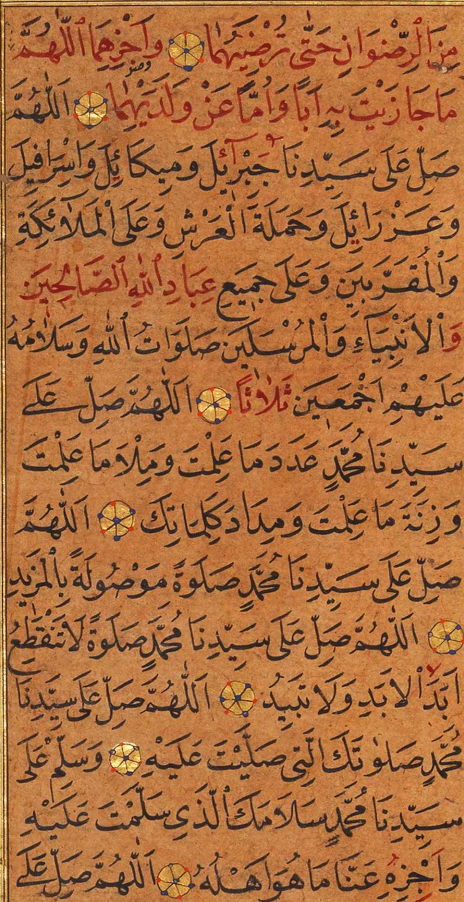 مِنَ الرِّضْوَانِ حَتّٰى تُرْضِيَهُمَا وَاَجْزِهِمَا اَللّٰهُمَّ
مَا جَازَيْتَ بِهِ اَبًا وَاُمًّا عَنْ وَلَدَيْهِمَا اَللّٰهُمَّ
صَلِّ عَلٰى سَيِّدِنَا جَبْرَآئِلَ وَمِيكَائِلَ وَاِسْرَافِيلَ
وَعَزْرَائِلَ وَحَمَلَةَ الْعَرْشِ وَعَلَى الْمَلَآئِكَةِ
وَالْمُقَرَّبِينَ وَعَلٰى جَمِيعِ عِبَادِ اللّٰهِ الصَّالِحِينَ
وَالْاَنْبِيَاءِ وَالْمُرْسَلِينَ صَلَوَاتُ اللّٰهِ وَسَلَامُهُ
عَلَيْهِمْ اَجْمَعِينَ ثَلَاثًا اَللّٰهُمَّ صَلِّ عَلٰى
سَيِّدِنَا مُحَمَّدٍ عَدَدَ مَا عَلِمْتَ وَمِلْاَ مَا عَلِمْتَ
وَزِنَةَ مَا عَلِمْتَ وَمِدَادَ كَلِمَاتِكَ اَللّٰهُمَّ
صَلِّ عَلٰى سَيِّدِنَا مُحَمَّدٍ صَلٰوةً مَوْصُولَةً بِالْمَزِيدِ
اَللّٰهُمَّ صَلِّ عَلٰى سَيِّدِنَا مُحَمَّدٍ صَلٰوةً لَا تَنْقَطِعُ
اَبَدَ الْاَبَدِ وَلَا تَبِيدُ اَللّٰهُمَّ صَلِّ عَلٰى سَيِّدِنَا
مُحَمَّدٍ صَلٰوتَكَ الَّتِى صَلَّيْتَ عَلَيْهِ وَسَلِّمْ عَلٰى
سَيِّدِنَا مُحَمَّدٍ سَلَامَكَ الَّذِى سَلَّمْتَ عَلَيْهِ
وَاَجْزِهُ عَنَّا مَا هُوَ اَهْلُهُ اَللّٰهُمَّ صَلِّ عَلٰى